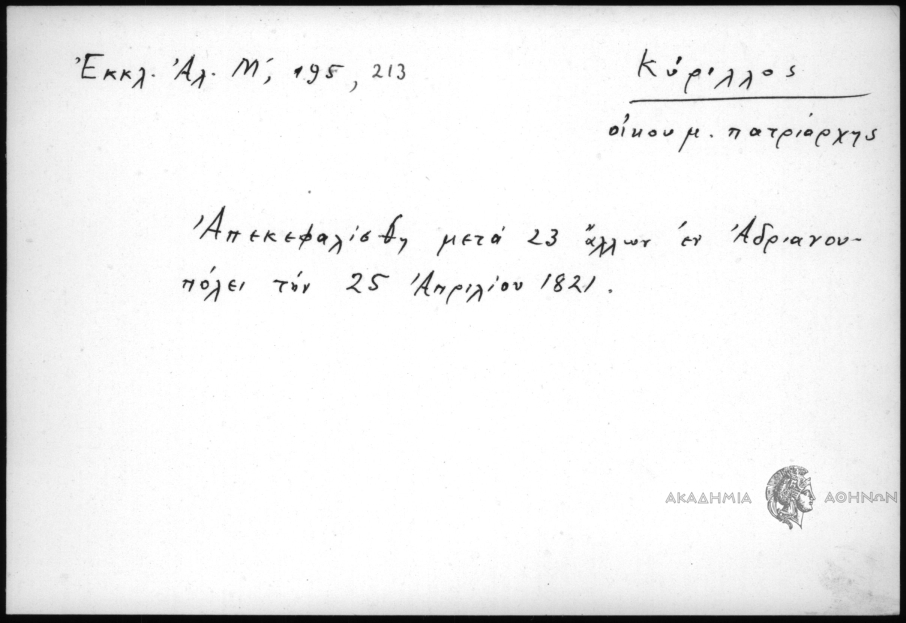 Ἐκκλ. Ἀλ. Μ΄, 195, 213
Κύριλλος
οἰκουμ. πατριάρχης
Ἀπεκεφαλίσθη μετά 23 ἄλλων ἐν Ἀδριανου-
πόλει τήν 25 Ἀπριλίου 1821.
ΑΚΑΔΗΜΙΑ ΑΘΗΝΩΝ